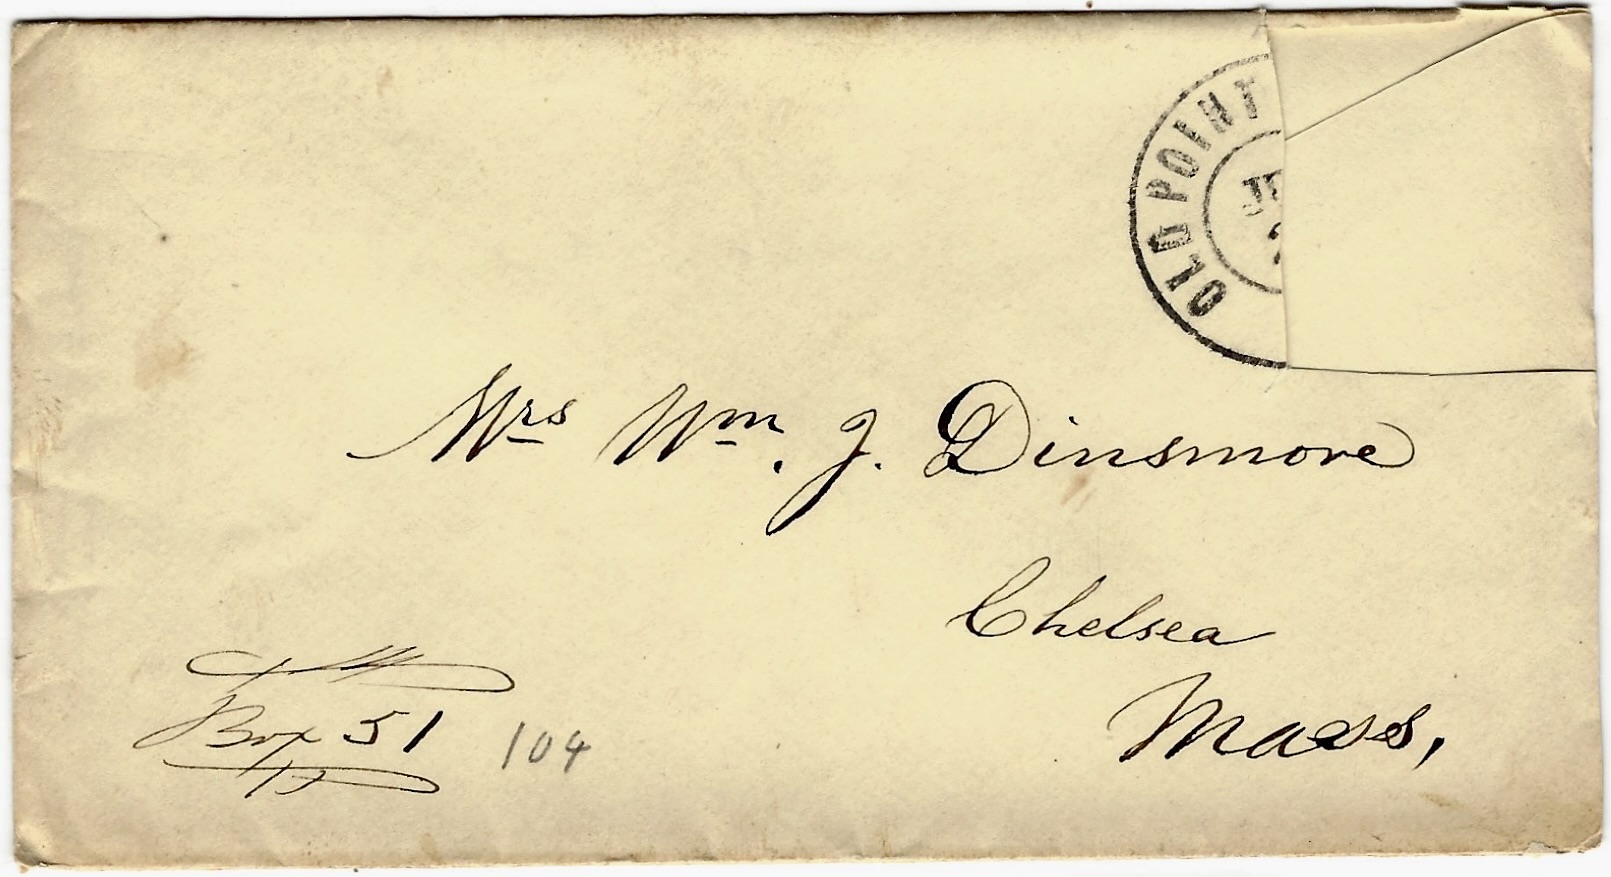 OLD POINT
Mrs Wm. J. Dinsmore
Chelsea
Mass,
Box 51
104